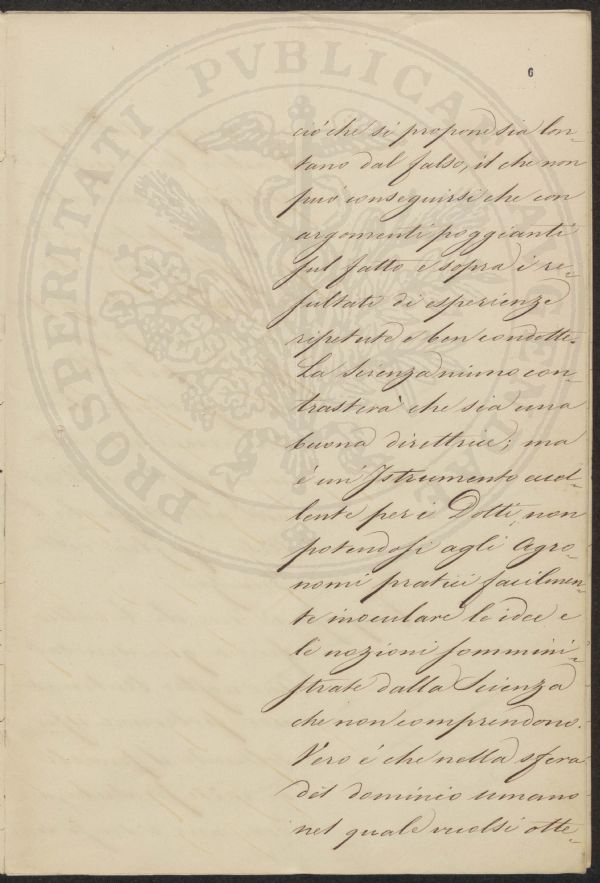 6
PROSPERITATI PVBLICAE AVGENDAE
ciò che si propone sia lon-
tano dal falso, il che non
può conseguirsi che con
argomenti poggianti
sul fatto e sopra i re-
sultati di esperienze
ripetute e ben condotte.
La Scienza niuno con-
trasterà che sia una
buona direttrice; ma
è un' Istrumento eccel-
lente per i Dotti, non
potendosi agli Agro-
nomi pratici facilmen-
te inoculare le idee e
le nozioni sommini-
strate dalla Scienza
che non comprendono.
Vero è che nella sfera
del dominio umano
nel quale vuolsi otte-